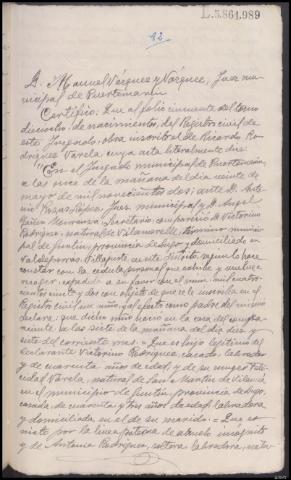 L.5.861.989
12
D. Manuel Vázquez y Vázquez, Juez mu-
nicipal de Puertomarín
Certifico: Que al folio cincuenta del tomo
dieciocho de nacimientos, del Registro civil de
este Juzgado, obra inscrito el de Ricardo Ro-
dríguez Varela, cuya acta literalmente dice
"En el Juzgado municipal de Puertomarín,
a las once de la mañana del día veinte de
mayo de mil novecientos dos; ante D. Anto-
nio López, Juez municipal y D. Angel
Secretario, compareció Victorino
Rodríguez, natural de Vilamorelle, término munici-
pal de Guntín, provincia de Lugo y domiciliado en
Valdeporras, Villajuste en este distrito, según lo hace
constar con la cédula personal que exhibe y vuelve a
recoger, expedida a su favor con el núm. mil cuatrocien-
tos y dos con objeto de que se le inscriba en el
Registro civil un niño, y al efecto como padre del mismo
declara: que dicho niño nació en la casa del compare-
ciente a las siete de la mañana del día diez y
siete del corriente mes. = Que es hijo legítimo del
declarante Victorino Rodríguez, casado, labrador
y de cuarenta años de edad, y de su mujer Feli-
cidad Varela, natural de San Martín de
en el municipio de Guntín, provincia de Lugo,
casada, de cuarenta y tres años de edad, labradora
y domiciliada en el de su marido: = Que es
nieto por la línea paterna de abuelo incógnito
y de Antonia Rodríguez, soltera, labradora, natu-